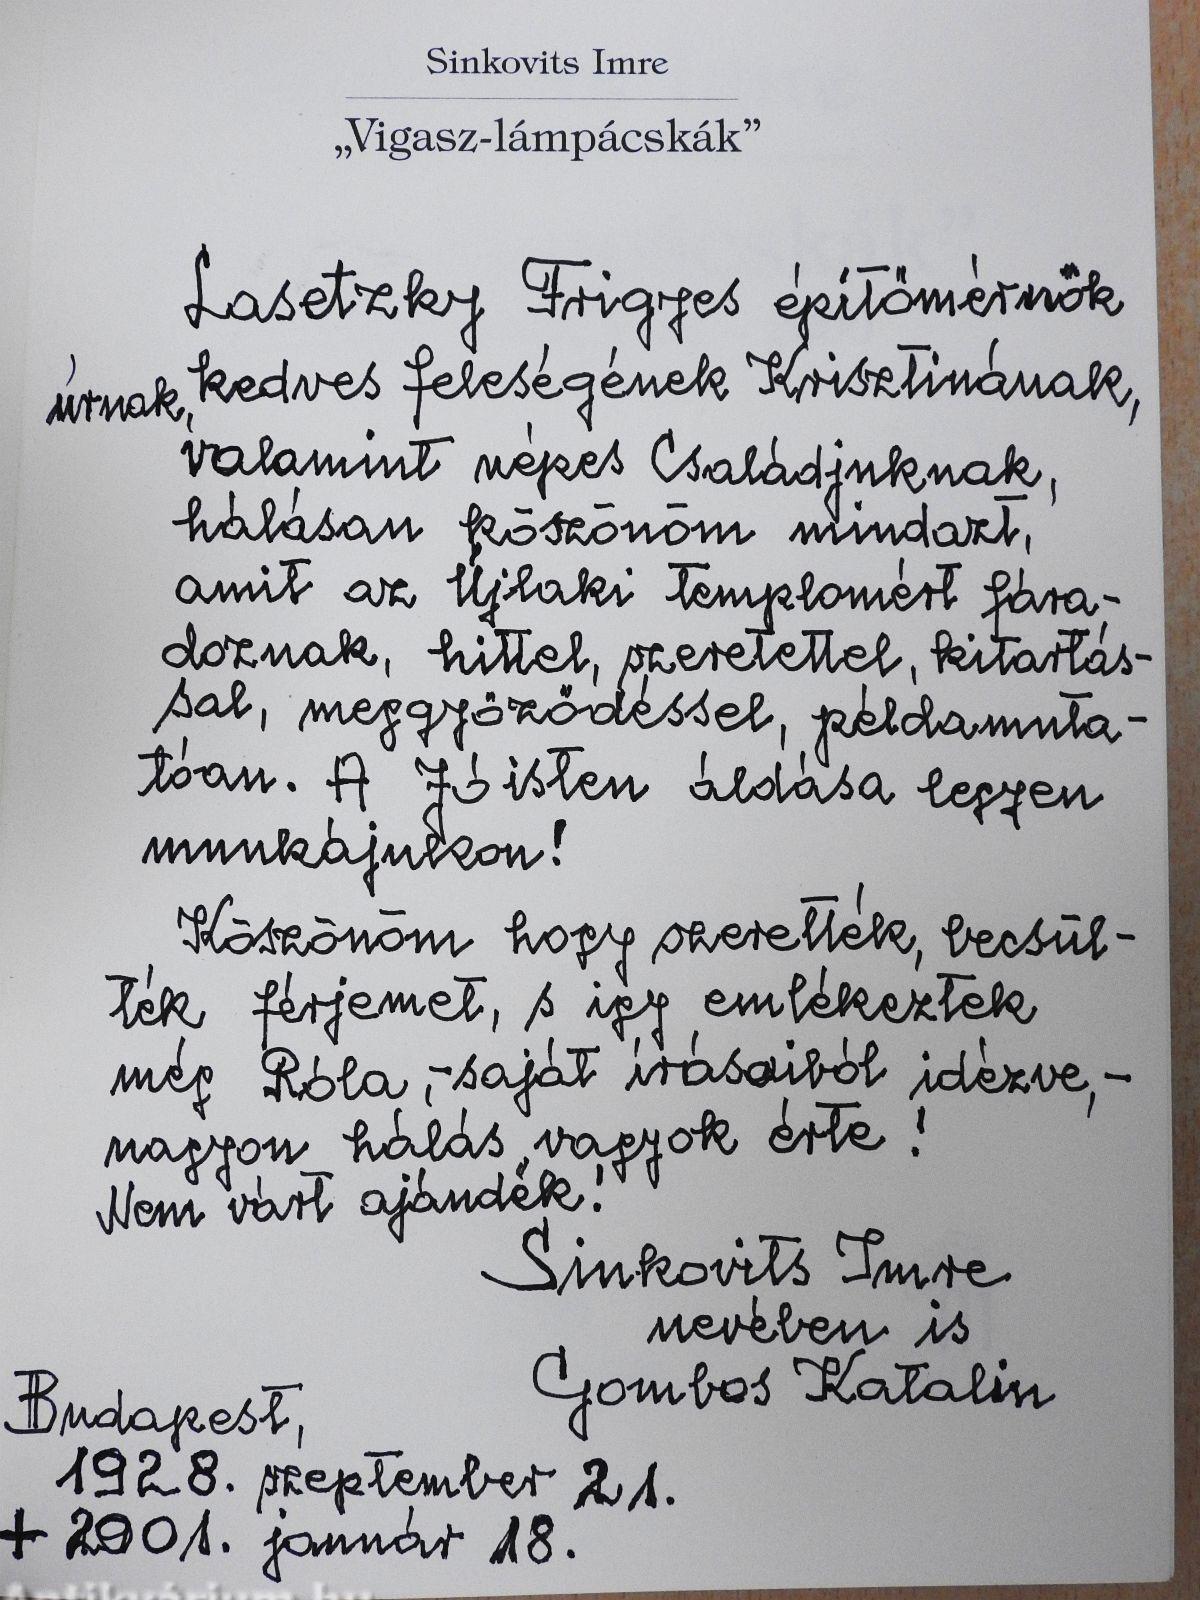 Sinkovits Imre
„Vigasz-lámpácskák”
Lasetzky Frigyes építőmérnök
úrnak, kedves feleségének Krisztinának,
valamint népes Családjuknak,
hálásan köszönöm mindazt,
amit az Újlaki templomért fára-
doznak, hittel, szeretettel, kitartás-
sal, meggyőződéssel, példamuta-
tóan. A Jó isten áldása legyen
munkájukon!
Köszönöm hogy szerették, becsül-
ték férjemet, s így emlékeztek
még Róla, - saját írásaiból idézve, -
nagyon hálás vagyok érte!
Nem várt ajándék!
Sinkovits Imre
nevében is
Gombos Katalin
Budapest,
1928. szeptember 21.
+ 2001. január 18.
Antikvárium.hu